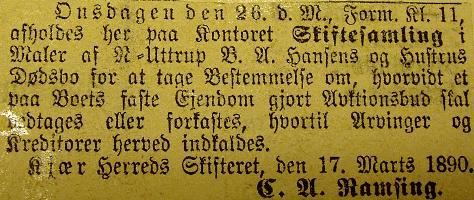 Onsdagen den 26. d. M., Form. Kl. 11,
afholdes her paa Kontoret Skiftesamling i
Maler af N-Uttrup B. A. Hansens og Hustrus
Dødsbo for at tage Bestemmelse om, hvorvidt et
paa Boets faste Ejendom gjort Avktionsbud skal
modtages eller forkastes, hvortil Arvinger og
Kreditorer herved indkaldes.
Kjær Herreds Skifteret, den 17. Marts 1890.
C. A. Ramsing.